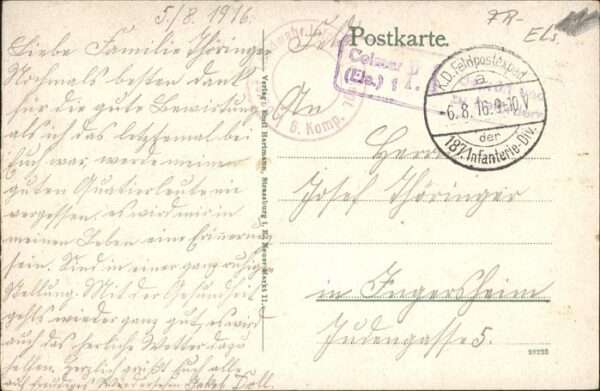 5./8. 1916.
Liebe Familie Thöringer
Nochmals besten Dank
für die gute Bewirtung
als ich das letztemal bei
Euch war, werde meine
guten Quatierleute nie
vergessen, es wird mir in
meinen Leben eine Erinnerung
sein. Sind in einer ganz ruhigen
Stellung. Mit der Gesundheit
gehts wieder ganz gut, es wird
auch das herliche Wetter dazu
helfen. Herzlich grüßt Euch alle
auf freudiges Wiedersehn Doll.
Verlag: Emil Hartmann, Strassburg i. E., Neuer Markt 11.
Postkarte.
Colmar
(Els.)
6. Komp.
K.D. Feldpostexped.
a
-6.8.16.9-10V
der
187. Infanterie-Div.
FR-
Els
An
Herrn
Josef Thöringer
in Ingersheim
Judengasse 5.